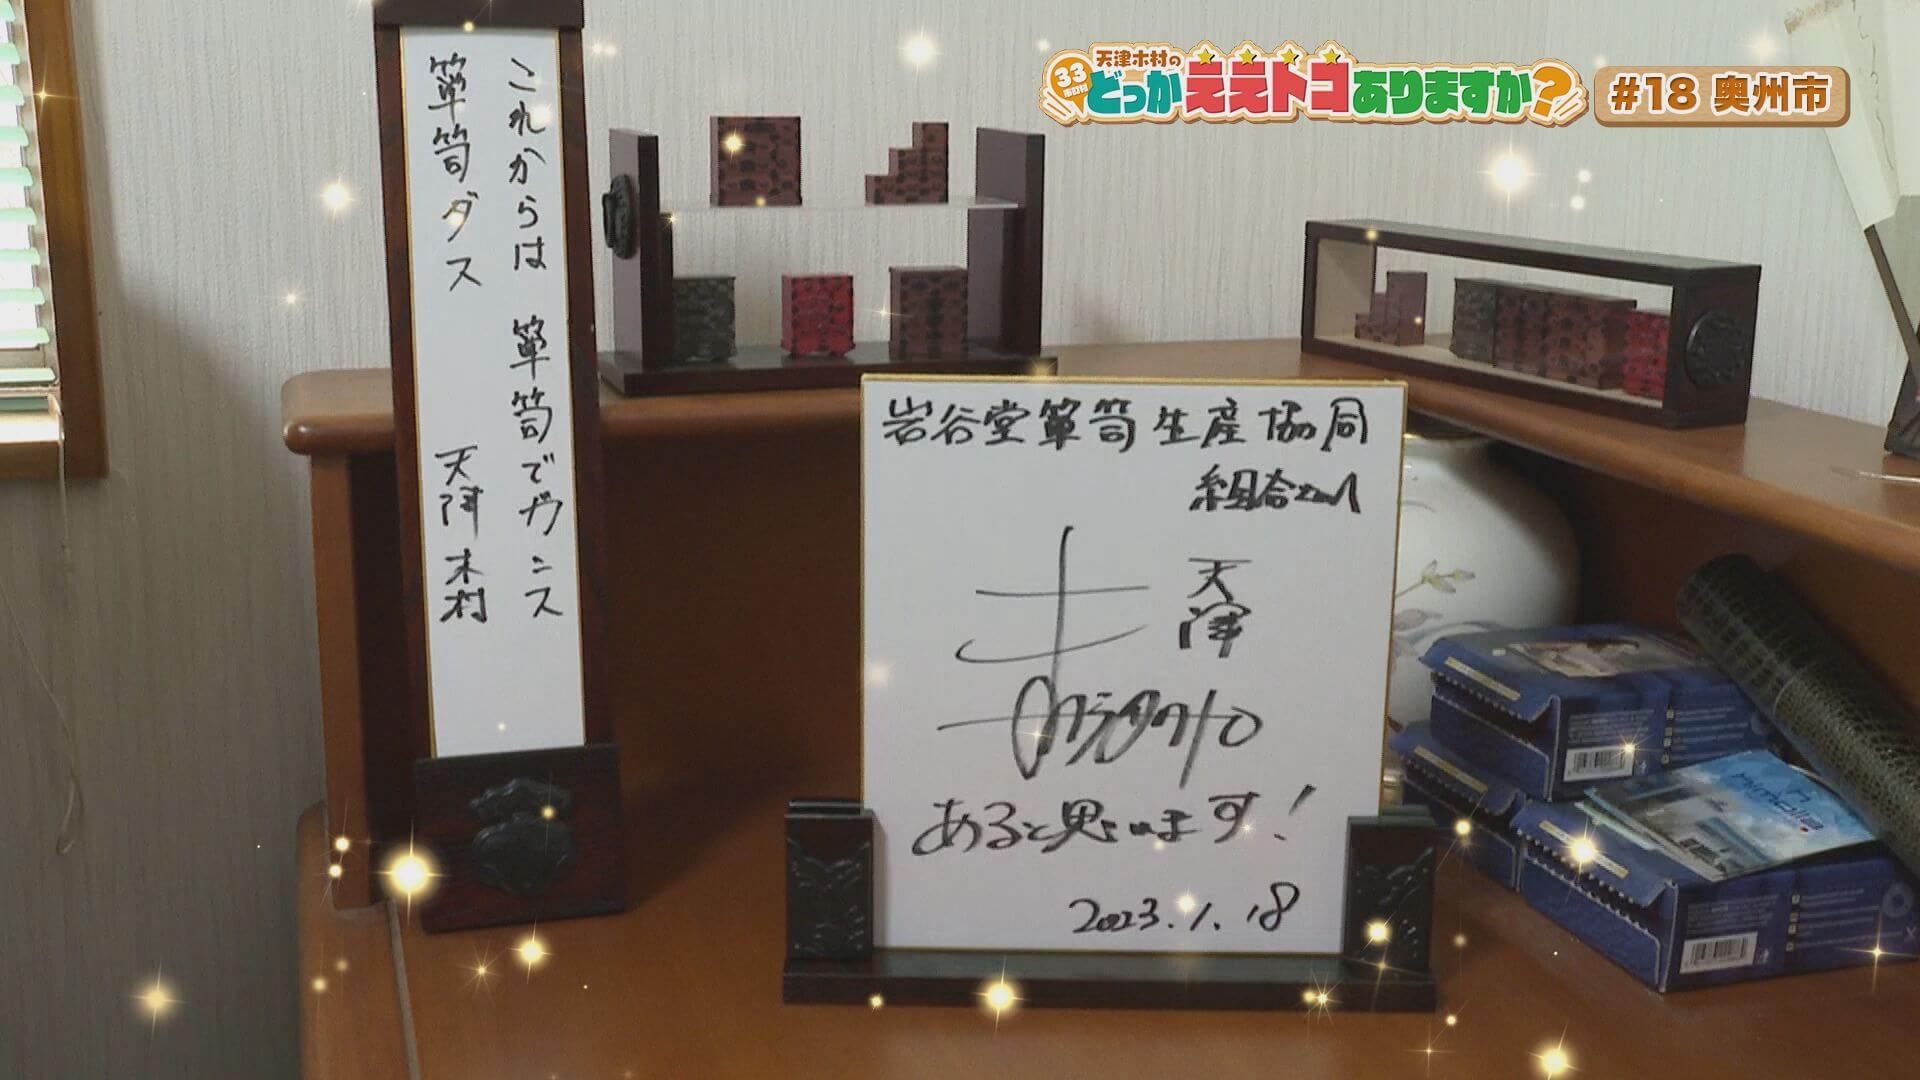 天津木村の
33市町村
どっかええトコありますか？
#18 奥州市
これからは 箪笥でガンス
箪笥ダス 天津木村
岩谷堂箪笥生産協同
組合さんへ
天津
あると思います！
2023.1.18